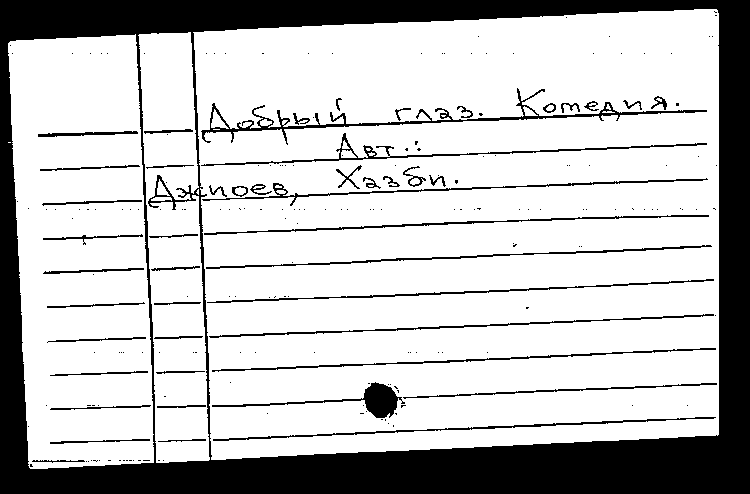 Добрый глаз. Комедия.
Авт.:
Джиоев, Хазби.